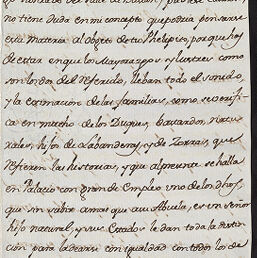 no tiene duda en mi concepto que podria pensarse
esta materia al objeto de tus Phelipios, porque hoy
de estas en que los Mayorazgos y lustres como
son los del Referido, lleban todo el sonido,
y la estimacion de las familias, como se verifi
ca en mucho de los Duques, bastardos, natu
rales, hijos de Labanderas, y de Zorras, que
refieren las historias, y qe. alpresente se halla
en Palacio con gran de Empleo uno de los dhos,
que sin sabir armas que avi Abuela, es un señor
hijo natural, y sus Estados le dan toda la distin
cion para ladearse con igualdad con todos los de